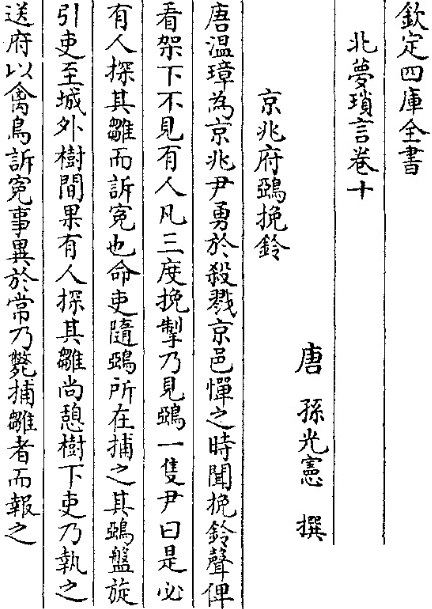 欽定四庫全書
北夢瑣言卷十
唐 孫光憲 撰
京兆府鵶挽鈴
唐温璋為京兆尹勇於殺戮京邑憚之時聞挽鈴聲俾
看架下不見有人凡三度挽掣乃見鵶一隻尹曰是必
有人探其雛而訴冤也命吏隨鵶所在捕之其鵶盤旋
引吏至城外樹間果有人探其雛尚憩樹下吏乃執之
送府以禽鳥訴冤事異於常乃斃捕雛者而報之